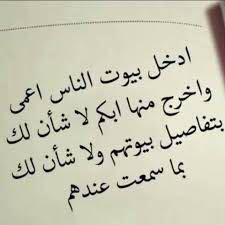 ادخل بيوت الناس اعمى
واخرج منها ابكم لا شأن لك
بتفاصيل بيوتهم ولا شأن لك
بما سمعت عندهم